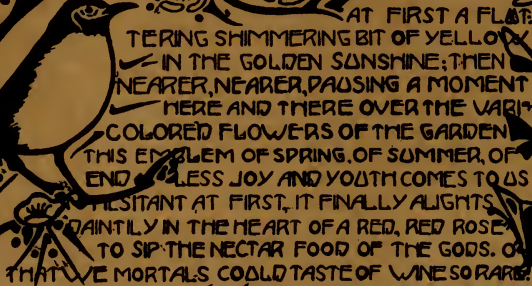 AT FIRST A FLUT-
TERING SHIMMERING BIT OF YELLOW
IN THE GOLDEN SUNSHINE; THEN
NEARER, NEARER, PAUSING A MOMENT
HERE AND THERE OVER THE VARI-
COLORED FLOWERS OF THE GARDEN
THIS EMBLEM OF SPRING, OF SUMMER, OF
END LESS JOY AND YOUTH COMES TO US
HESITANT AT FIRST, IT FINALLY ALIGHTS
DAINTILY IN THE HEART OF A RED, RED ROSE
TO SIP THE NECTAR FOOD OF THE GODS. O
THAT WE MORTALS COULD TASTE OF WINE SO RARE!